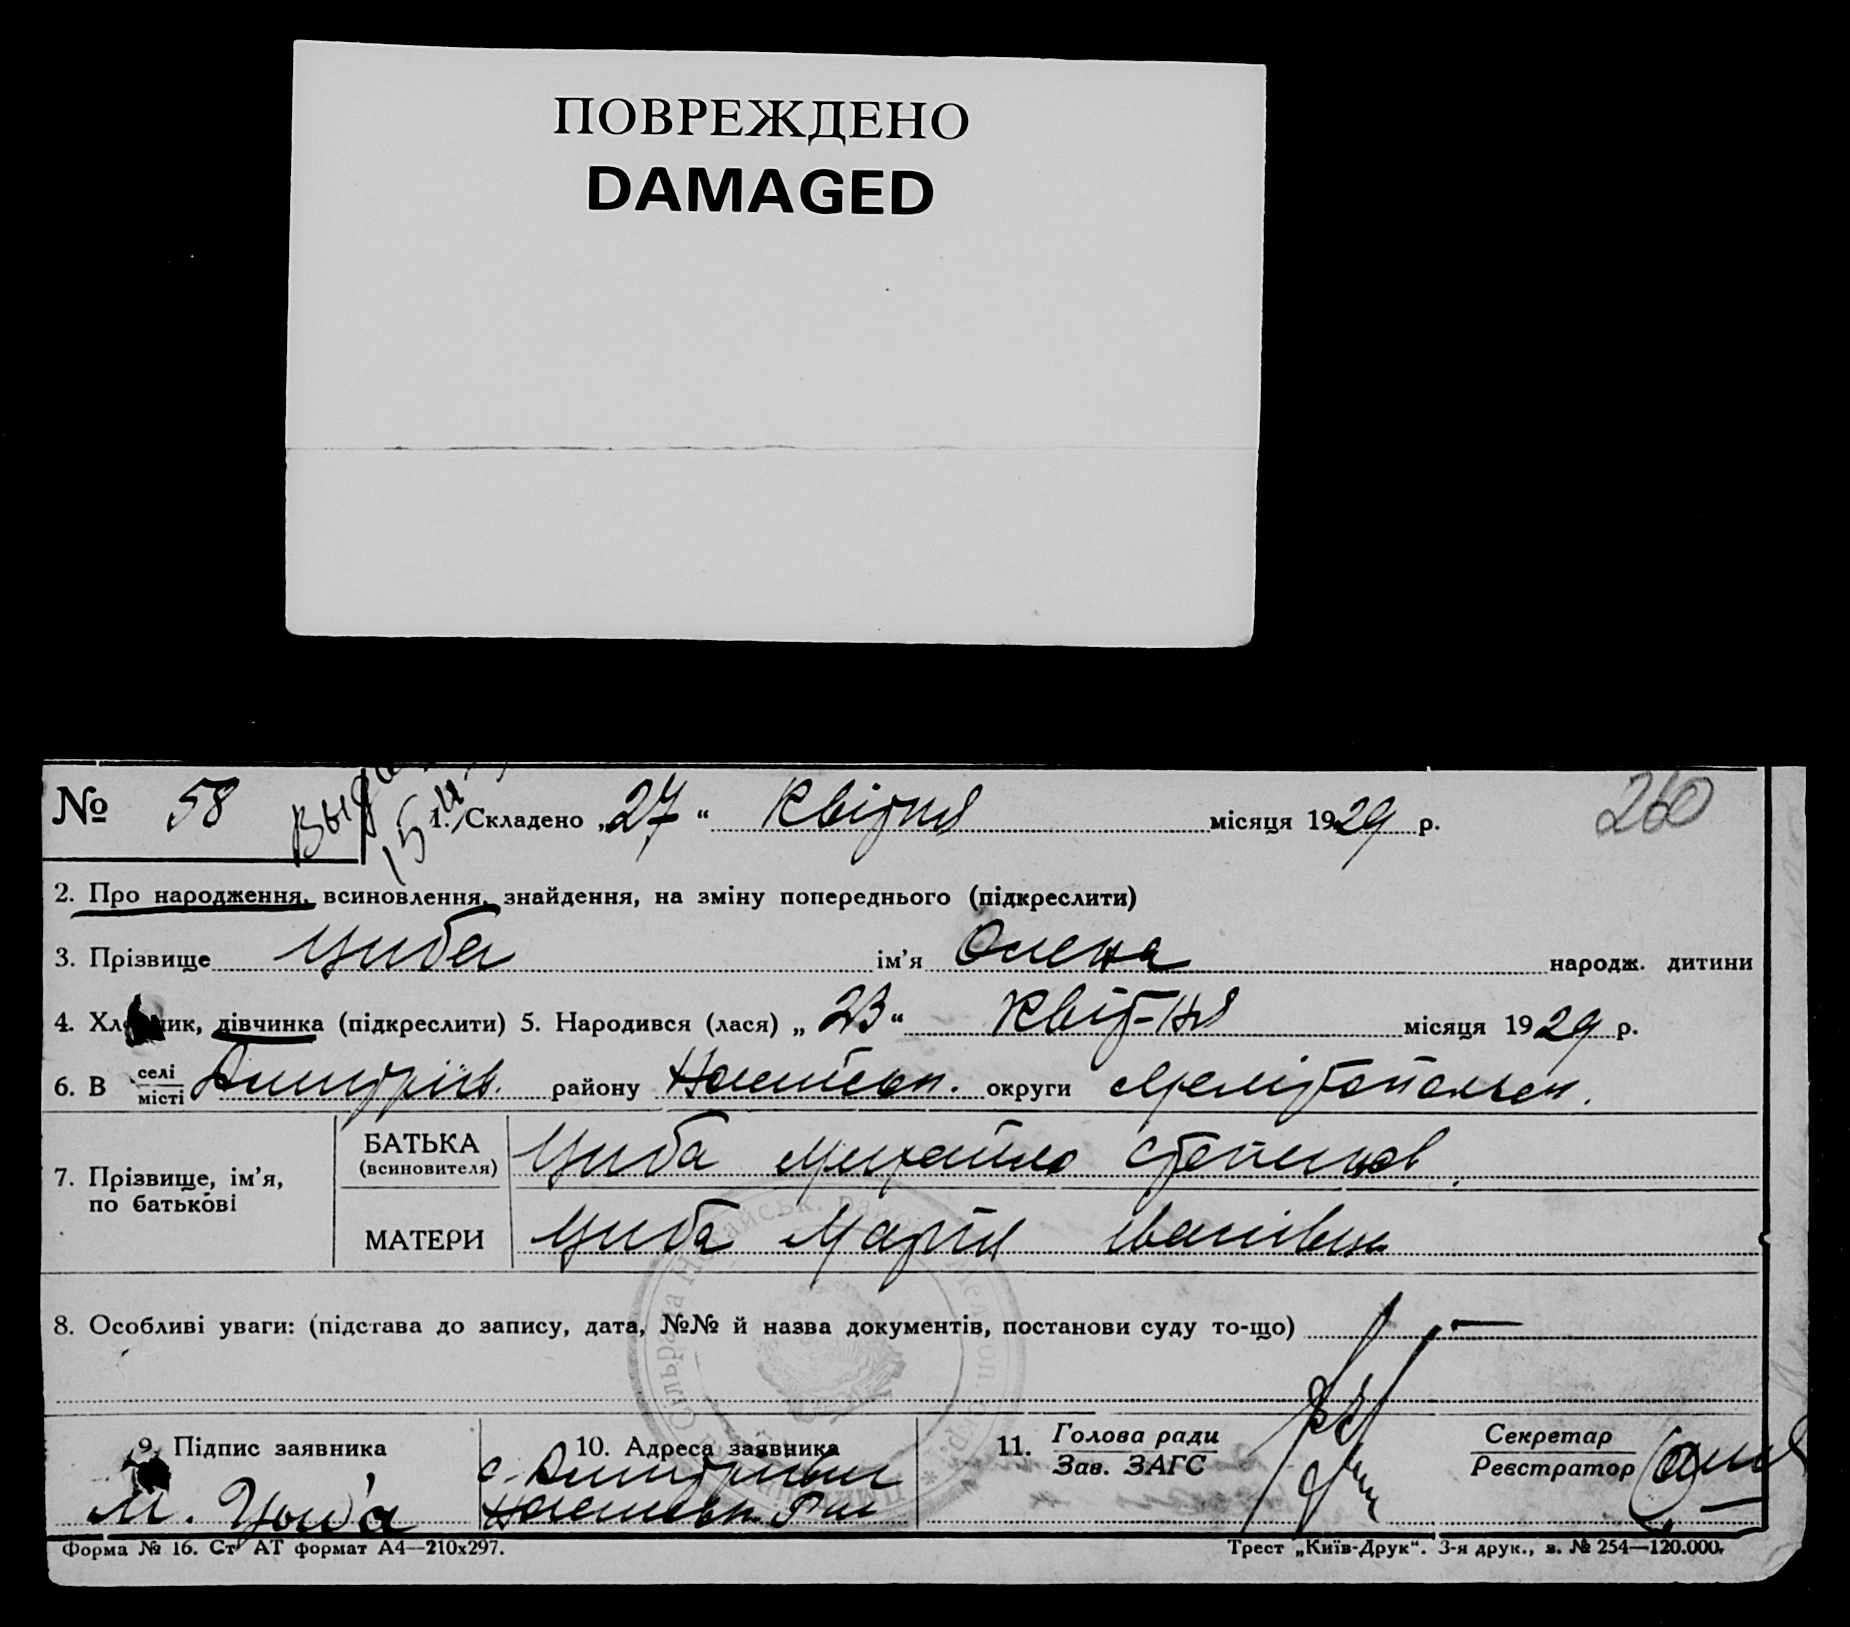 ПОВРЕЖДЕНО
DAMAGED
№ 58 1. Складено „27“ Квітня місяця 1929 р. 260
2. Про народження, всиновлення, знайдення, на зміну попереднього (підкреслити)
3. Прізвище Циба ім’я Олена народж. дитини
4. Хл ик, дівчинка (підкреслити) 5. Народився (лася) „23“ Квіт-ня місяця 1929 р.
6. В селі
місті Дмитрів. району Ногайськ. округи Мелітопольськ.
7. Прізвище, ім’я, по батькові
БАТЬКА (всиновителя) Циба Михайло Степанов
МАТЕРИ Циба Марія Іванівн
8. Особливі уваги: (підстава до запису, дата, №№ й назва документів, постанови суду то-що)
9. Підпис заявника
М. Цыба
10. Адреса заявника
с. Дмитрівки
Ногайськ. Р-ну
11. Голова ради
Зав. ЗАГС
Секретар
Реєстратор
Форма № 16. Ст АТ формат А4—210х297.
Трест „Київ-Друк“. 3-я друк., з. № 254—120.000.